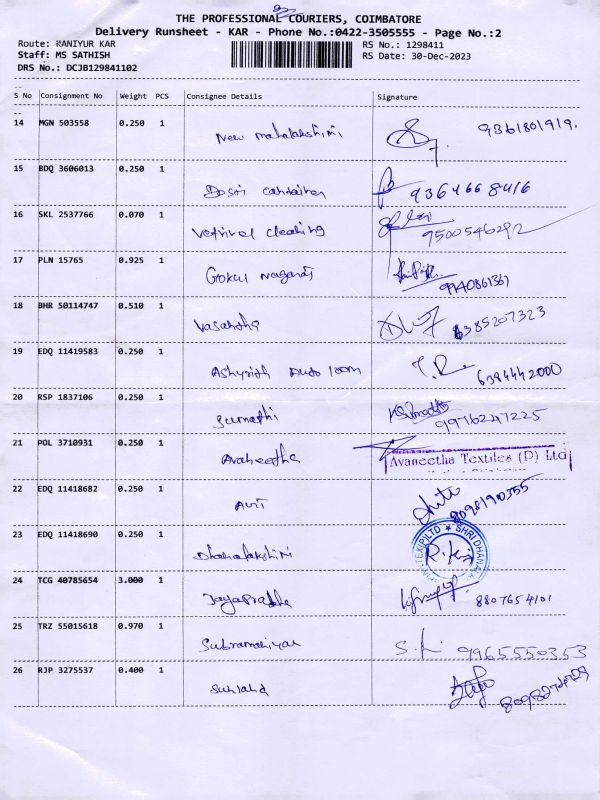 THE PROFESSIONAL COURIERS, COIMBATORE
Delivery Runsheet - KAR - Phone No.:0422-3505555 - Page No.:2
Route: KANIYUR KAR RS No.: 1298411
Staff: MS SATHISH RS Date: 30-Dec-2023
DRS No.: DCJB129841102
S No Consignment No Weight PCS Consignee Details Signature
14 MGN 503558 0.250 1 New mahalakshmi 9361801919.
15 BDQ 3606013 0.250 1 9364668416
16 SKL 2537766 0.070 1 Vetrivel cleaning 9500546292
17 PLN 15765 0.925 1 Gokul Nagaraj 9940861361
18 BHR 50114747 0.510 1 Vasantha 6385207323
19 EDQ 11419583 0.250 1 Auto loom 6384442000
20 RSP 1837106 0.250 1 Sumathi 9976247225
21 POL 3710931 0.250 1 Avaneetha Avaneetha Textiles (P) Ltd
22 EDQ 11418682 0.250 1
23 EDQ 11418690 0.250 1 Dhanalakshmi
24 TCG 40785654 3.000 1 Jayapradha 8807654101
25 TRZ 55015618 0.970 1 Subramaniyan 9965550353
26 RJP 3275537 0.400 1